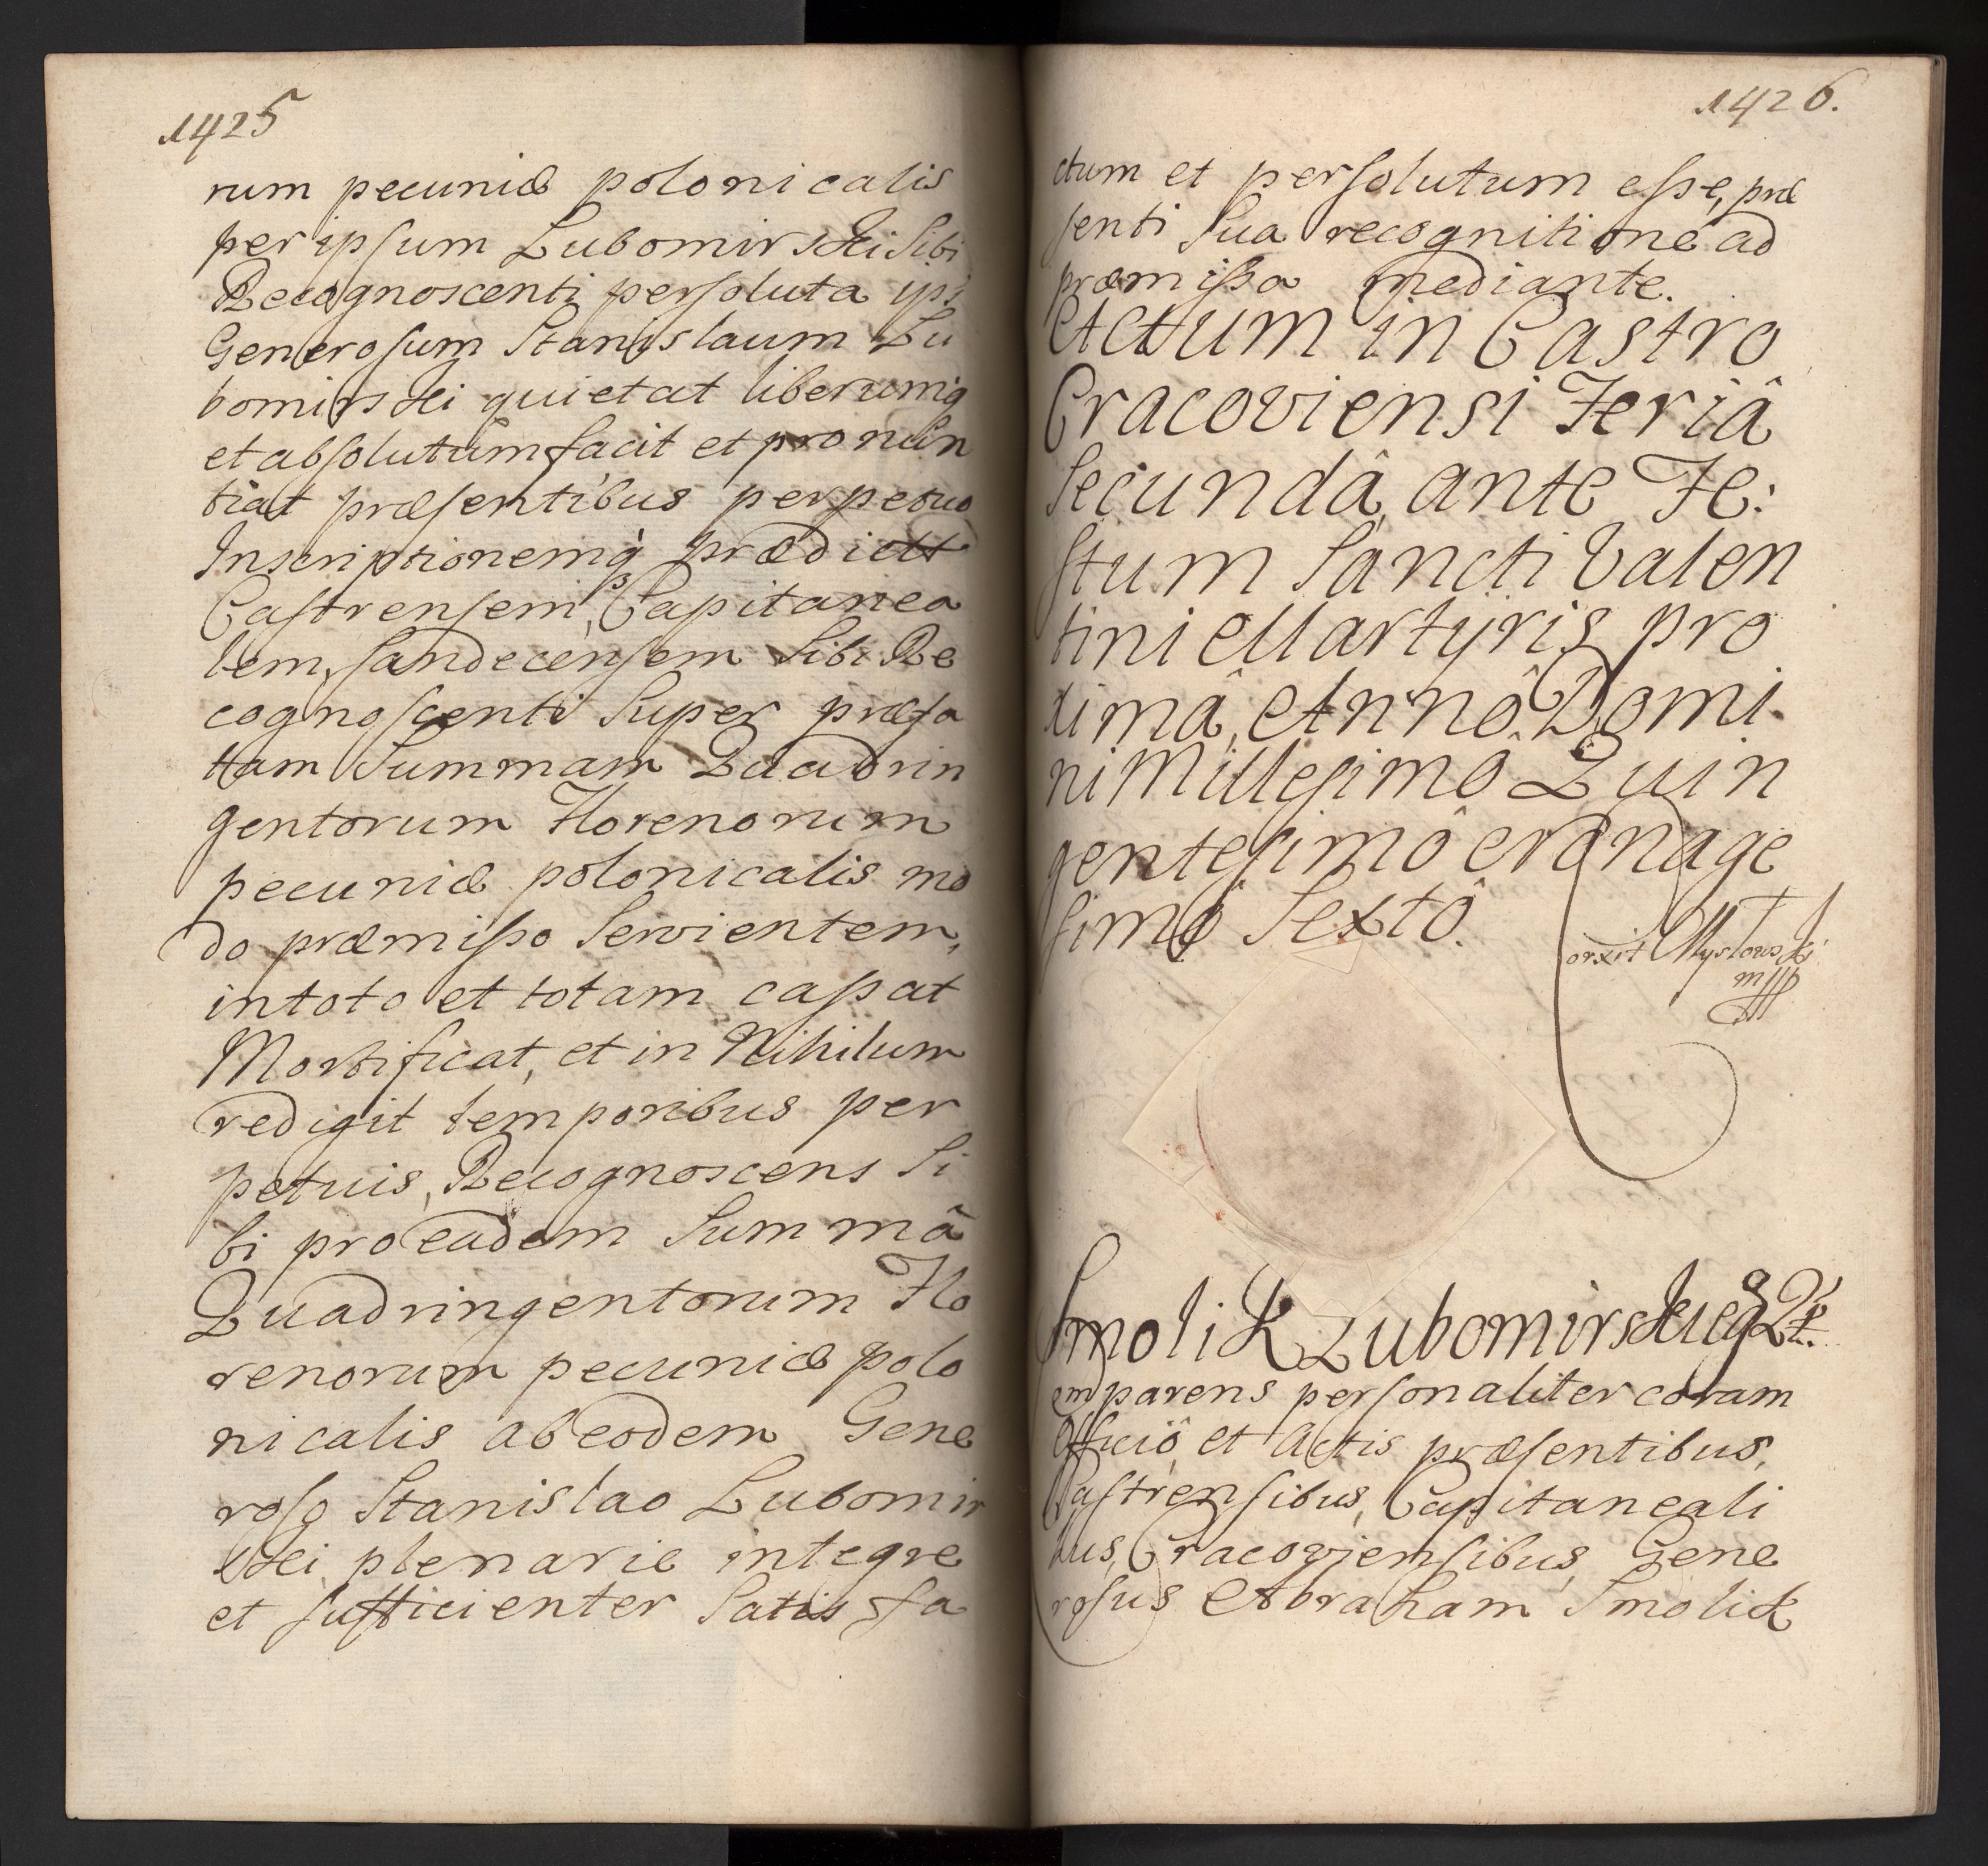 1425
rum pecuniæ polonicalis
per ipsum Lubomirski Sibi
Recognoscenti persoluta ips
Generosum Stanislaum Lu
bomirski quietat liberumq
et absolutum facit et pronun
tiat præsentibus perpetuo
Inscriptionemq prædictt
Castrensem, Capitanea
lem, Sandecensem Sibi Re
cognoscenti Super præfa
ttam Summam Quadrin
gentorum Florenorum
pecuniæ polonicalis mo
do præmisso Servientem,
in toto et totam cassat
Mortificat, et in Nihilum
redigit temporibus per
petuis, Recognoscens Si
bi pro eadem Summâ
Quadringentorum Flo
renorum pecuniæ polo
nicalis ab eodem Gene
roso Stanislao Lubomir
ski plenarie integre
et sufficienter Satis fa
1426.
ctum et persolutum esse, præ
senti Sua recognitione ad
præmissa mediante.
Actum in Castro
Cracoviensi Feriâ
Secundâ, ante Fe:
stum Sancti Valen
tini Martyris pro
ximâ, Annô Domi
ni Millesimô Quin
gentesimô Nonage
simô Sextô.
orxit
mpp
Smolik Lubomirski eg Qt.
Comparens personaliter coram
Officiô, et Actis præsentibus,
Castrensibus, Capitaneali
bus, Cracoviensibus, Gene
rosus Abraham Smolik